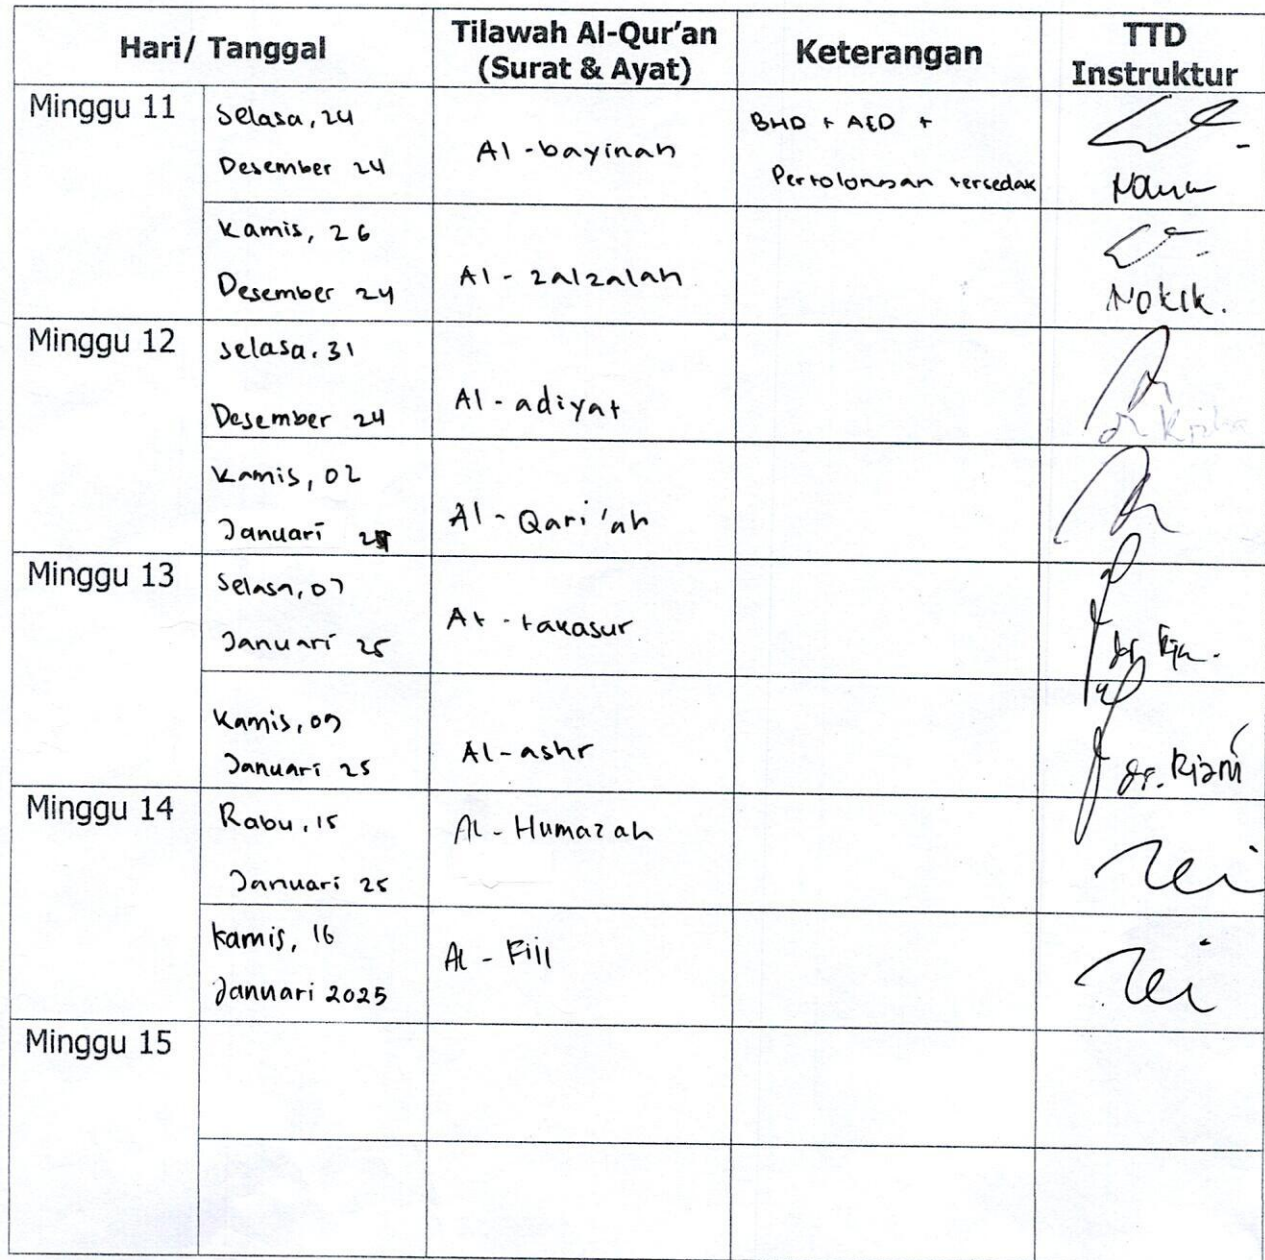 Hari/ Tanggal
Tilawah Al-Qur'an
(Surat & Ayat)
Keterangan
TTD
Instruktur
Minggu 11
Selasa, 24
Desember 24
Al-bayinah
BHD + AED +
Pertolongan tersedak
Kamis, 26
Desember 24
Al-zalzalah
Nokik.
Minggu 12
Selasa, 31
Desember 24
Al-adiyat
Kamis, 02
Januari
Al-Qari'ah
Minggu 13
Selasa, 07
Januari 25
At-takasur
dr.
Kamis, 09
Januari 25
Al-ashr
dr.
Minggu 14
Rabu, 15
Januari 25
Al-Humazah
Kamis, 16
Januari 2025
Al-Fiil
Minggu 15